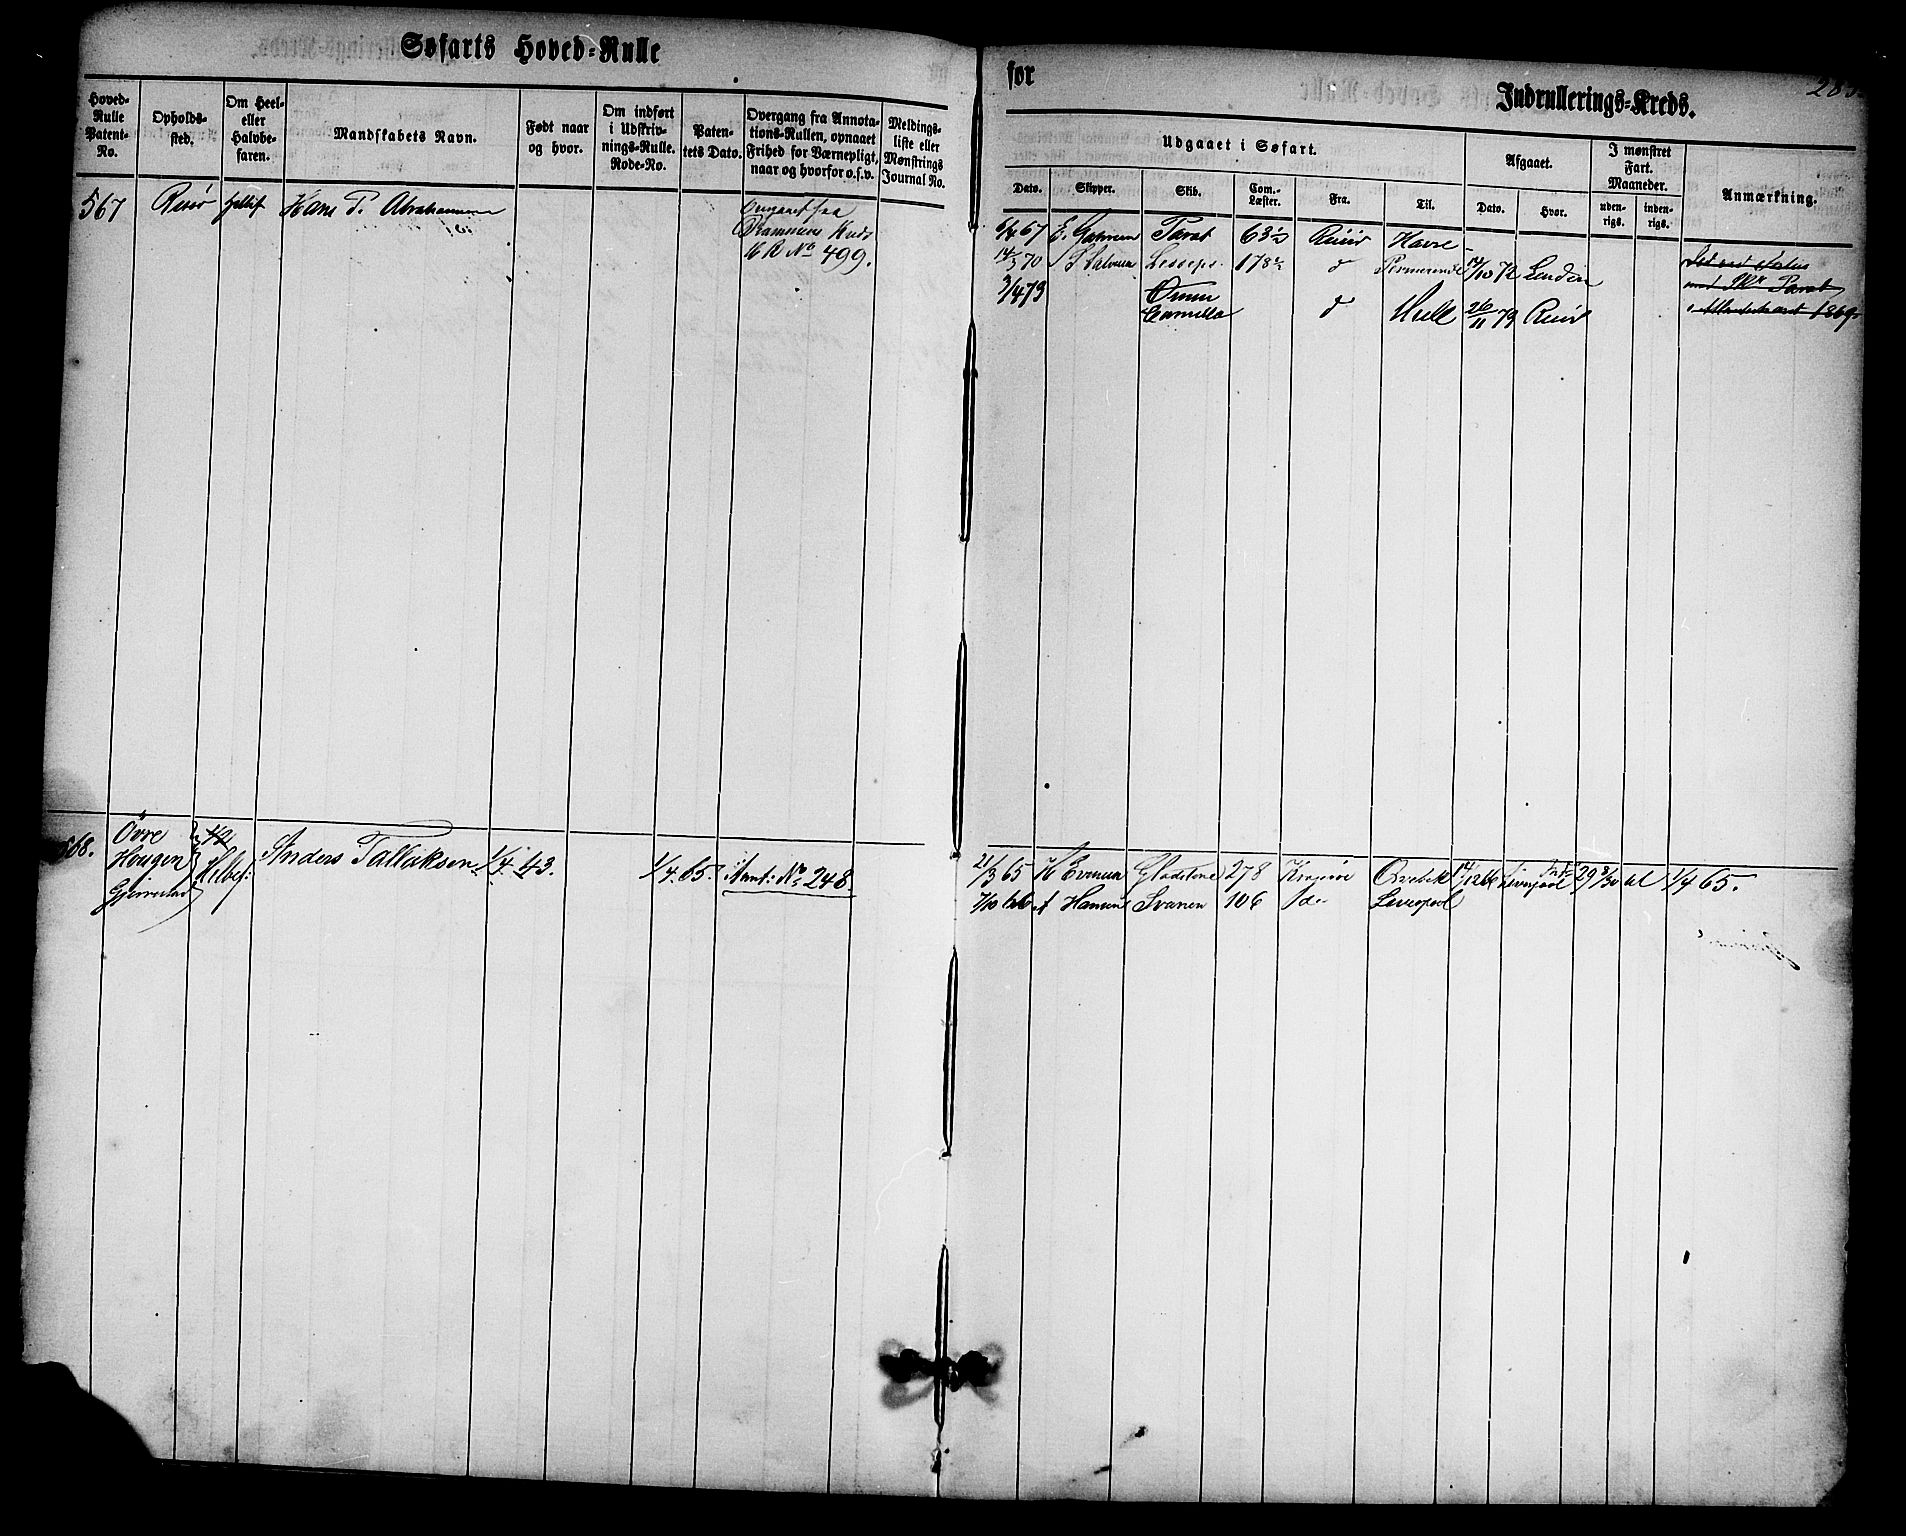 Søfarts Hoved-Rulle
for
Indrullerings-Kreds.
Hoved-Rulle Patent-No.
Opholds-sted.
Om Heel- eller Halvbe-faren.
Mandskabets Navn.
Født naar og hvor.
Om indført i Udskriv-nings-Rulle. Rode-No.
Paten-tets Dato.
Overgang fra Annota-tions-Rullen, opnaaet Frihed for Værnepligt, naar og hvorfor o.s.v.
Meldings-liste eller Mønstrings Journal No.
Udgaaet i Søfart.
Dato. Skipper. Skib. Com.-Læster. Fra. Til.
Afgaaet.
Dato. Hvor.
I mønstret Fart. Maaneder.
uden-rigs. inden-rigs.
Anmærkning.
567 Risør Hans P. Abrahamsen
No 499.
6/4 67 Tarat 63½ Risør Havre
14/3 70 Lesseps 178½ d 14/10 72 London
3/4 73 Camilla d Hull 26/11 73 Risør
1869
568. Øvre Hougen Gjerrestad ½ Helbef: Anders Tallaksen 1/4. 43. 1/4. 65. Annt: No 248
21/3 65 H Evensen Gladstone 278 Kragerø 14/12 66 Liverpool 29 8/30 til 1/4 65.
7/10 66 A Hansen Svanen 106 do Liverpool